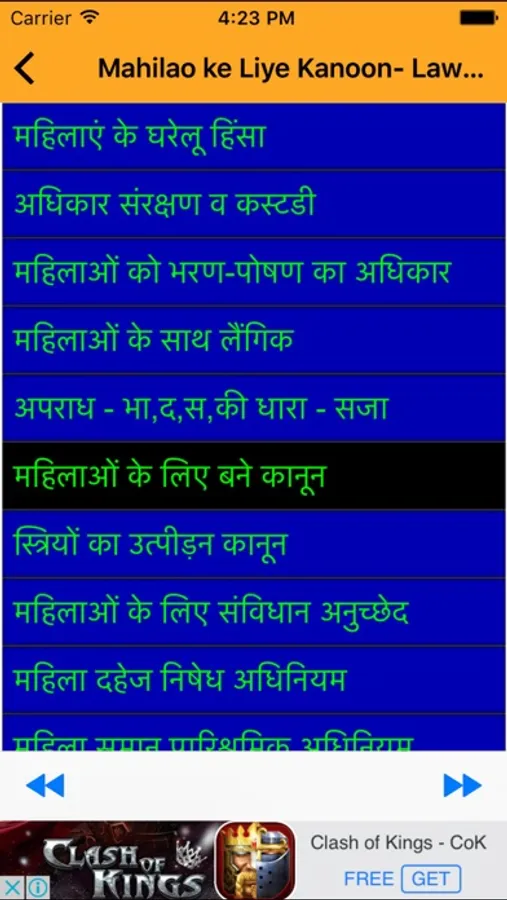 Carrier 4:23 PM
Mahilao ke Liye Kanoon- Law...
महिलाएं के घरेलू हिंसा
अधिकार संरक्षण व कस्टडी
महिलाओं को भरण-पोषण का अधिकार
महिलाओं के साथ लैंगिक
अपराध - भा,द,स,की धारा - सजा
महिलाओं के लिए बने कानून
स्त्रियों का उत्पीड़न कानून
महिलाओं के लिए संविधान अनुच्छेद
महिला दहेज निषेध अधिनियम
महिला समान पारिश्रमिक अधिनियम
CLASH OF KINGS
Clash of Kings - CoK
FREE GET